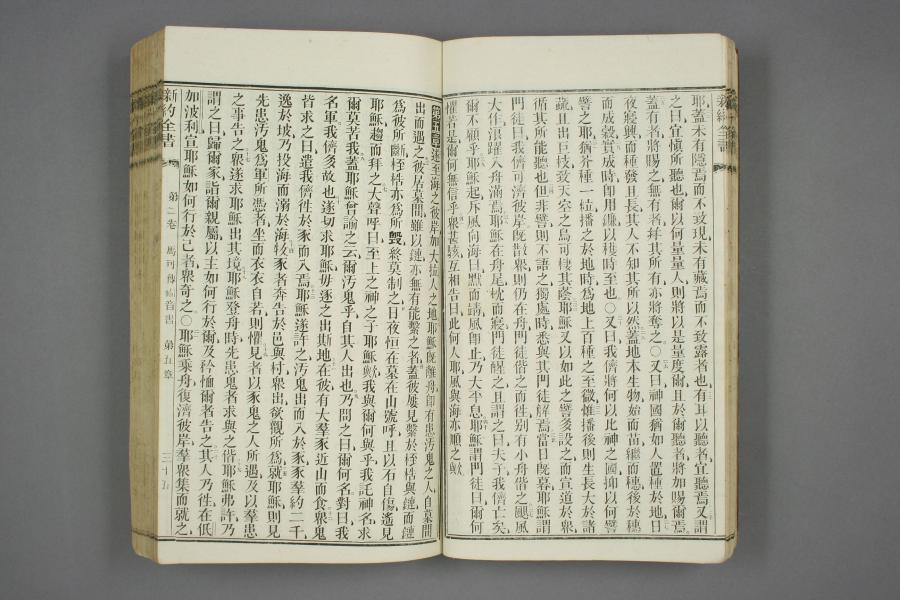 耶穌未有隱焉而不致現未有藏焉而不致露者也有耳以聽者宜聽焉又謂
之曰宜慎所聽也爾以何量量人則將以是量度爾且於爾聽者將加賜爾焉
蓋有者將賜之無有者并其所有亦將奪之〇又曰神國猶如人置種於地日
夜寢興而種發且長其人不知其所以然蓋地本生物始而苗繼而穗後於穗
而成穀實成時即用鐮以穫時至也〇又曰我儕將何以比神之國抑以何譬
譬之耶猶芥種一粒播之於地時為地上百種之至微惟播後則生長大於諸
蔬且出巨枝致天空之鳥可棲其蔭耶穌又以如此之譬多設之而宣道於眾
循其所能聽也但非譬則不語之獨處時悉與其門徒解焉當日既暮耶穌謂
門徒曰我儕可濟彼岸既散眾則仍在舟門徒偕之而往別有小舟偕之颶風
大作浪躍入舟滿焉耶穌在舟尾枕而寢門徒醒之且謂之曰夫子我儕亡矣
爾不顧乎耶穌起斥風向海曰默而靖風即止乃大平息耶穌謂門徒曰爾何
懼若是爾何無信乎眾甚駭互相告曰此何人耶風與海亦順之歟
第五章遂至海之彼岸加大拉人之地耶穌既離舟即有患汚鬼之人自墓間
出而遇之彼居墓間雖以鏈亦無有能繫之者蓋彼屢見繫於桎梏與鏈而鏈
為彼所斷桎梏亦為所毀終莫制之日夜恒在墓在山號呼且以石自傷遙見
耶穌趨而拜之大聲呼曰至上之神之子耶穌歟我與爾何與乎我託神名求
爾莫苦我蓋耶穌曾諭之云爾汚鬼乎自其人出也乃問之曰爾何名對曰我
名軍我儕多故也遂切求耶穌毋逐之出斯地在彼有大羣豕近山而食眾鬼
皆求之曰遣我儕往於豕而入焉耶穌遂許之汚鬼出而入於豕豕羣約二千
逸於坡乃投海而溺於海牧豕者奔告於邑與村眾出欲觀所為就耶穌則見
先患汚鬼為軍所憑者坐而衣衣自若則懼見者以豕鬼之人所遇及以羣豕
之事告之眾遂求耶穌出其境耶穌登舟時先患鬼者求與之偕耶穌弗許乃
謂之曰歸爾家詣爾親屬以主如何行於爾及矜恤爾者告之其人乃往在低
加波利宣耶穌如何行於己者眾奇之〇耶穌乘舟復濟彼岸羣眾集而就之
新約全書 第二卷 馬可傳福音書 第五章 三十五